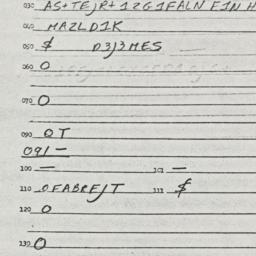 030 AS+TEJR+12G1FALN E1N H
040 MAZLD1K
050 $ D3J3MES
060 O
070 O
090 O T
091 -
100 - 101 -
110 OFABREJT 111 $
120 O
130 O